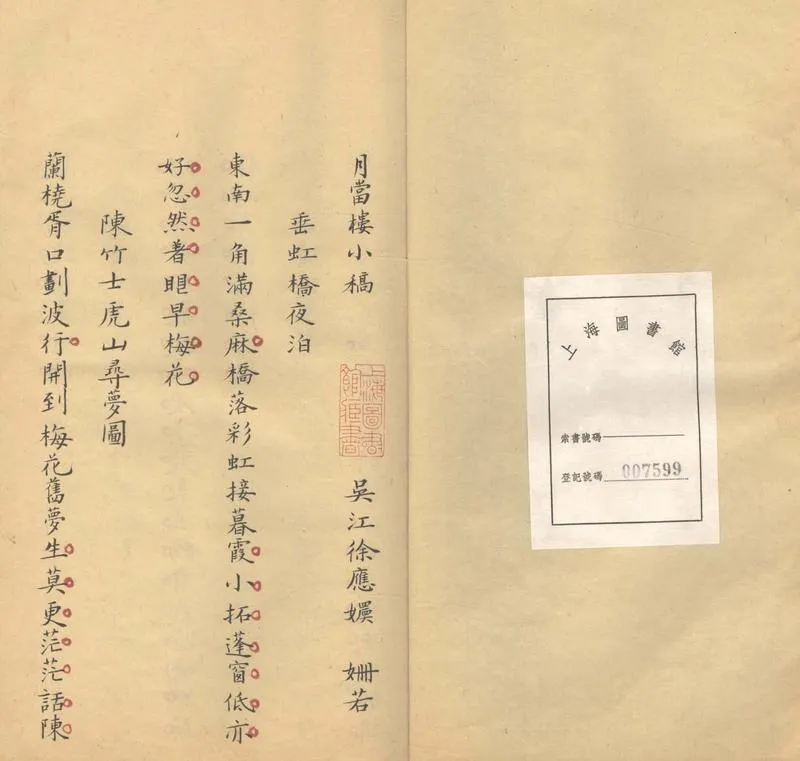 上海圖書館
索書號碼
登記號碼 007599
月當樓小稿
上海圖書館藏書
吳江徐應嬽 姍若
垂虹橋夜泊
東南一角滿桑麻橋落彩虹接暮霞小拓蓬窗低亦
好忽然著眼早梅花
陳竹士虎山尋夢圖
蘭橈胥口劃波行開到梅花舊夢生莫更茫茫話陳